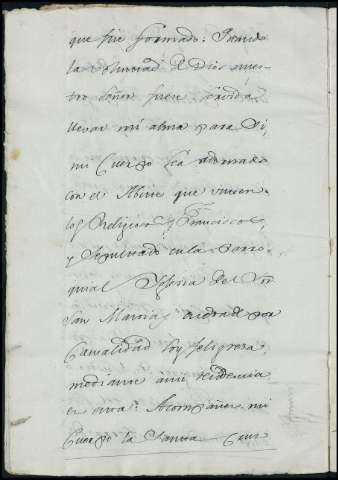 que fue formado: Quando
la Voluntad de Dios nues-
tro Señor fuere servida
llevar mi alma para Si,
mi Cuerpo sea adornado
con el Abito que visten
los Religiosos Franciscos,
y Sepultado en la Parro-
quial Yglesia del Sor
San Martin, de donde por
Casualidad soy feligresa,
mediante ami residencia
en Acompañen mi
Cuerpo la Santa Cruz